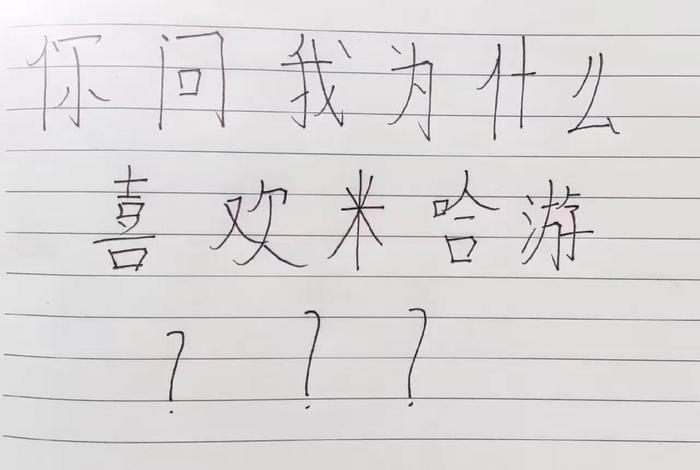 你问我为什么
喜欢米哈游
???